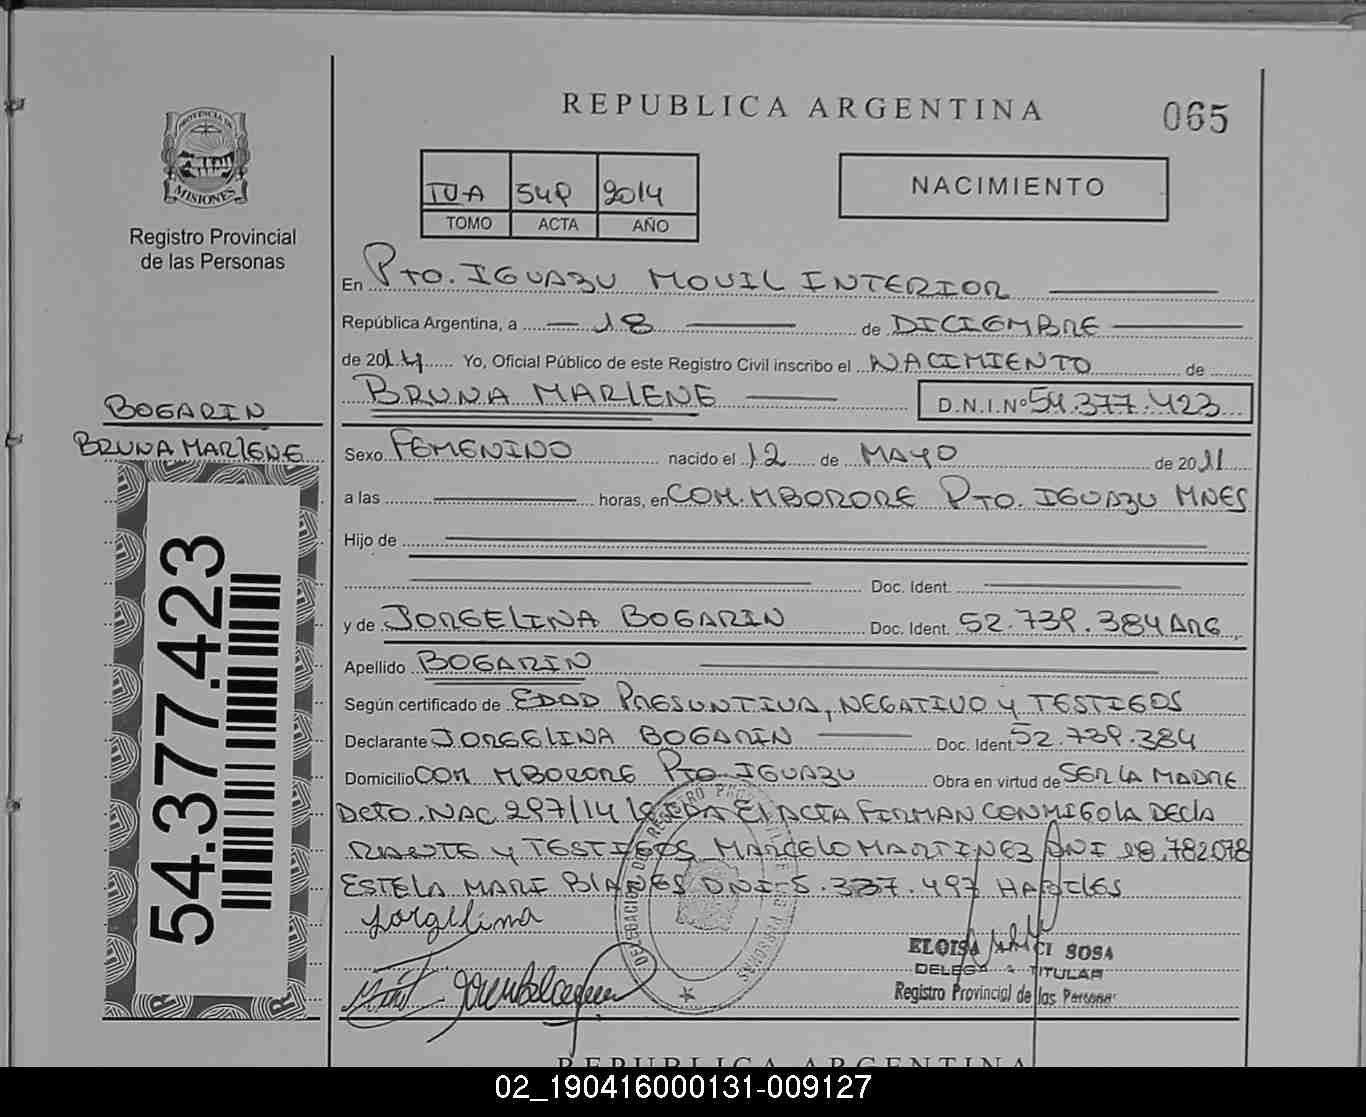 REPUBLICA ARGENTINA
065
PROVINCIA DE
MISIONES
Registro Provincial
de las Personas
TOMO ACTA AÑO
2014
NACIMIENTO
En Pto. IGUAZU MOVIL INTERIOR
República Argentina, a 18 de DICIEMBRE
de 2014 Yo, Oficial Público de este Registro Civil inscribo el NACIMIENTO de
BRUNA MARLENE D.N.I.Nº 54.377.423
BOGARIN
BRUNA MARLENE
54.377.423
Sexo FEMENINO nacido el 12 de MAYO de 2011
a las horas, en COM. MBORORE Pto. IGUAZU MNES
Hijo de
Doc. Ident.
y de JORGELINA BOGARIN Doc. Ident. 52.739.384 ARG
Apellido BOGARIN
Según certificado de EDAD PRESUNTIVA, NEGATIVO Y TESTIGOS
Declarante JORGELINA BOGARIN Doc. Ident. 52.739.384
Domicilio COM MBORORE Pto. IGUAZU Obra en virtud de SER LA MADRE
DCTO. NAC. 297/14 LEIDA EL ACTA FIRMAN CONMIGO LA DECLA
RANTE Y TESTIGOS MARCELO MARTINEZ DNI 18.782078
ESTELA MARI BLANES DNI 5.337.497 HABILES
Jorgelina
ELOISA SOSA
DELEGADA TITULAR
Registro Provincial de las Personas
REPUBLICA ARGENTINA
02_190416000131-009127